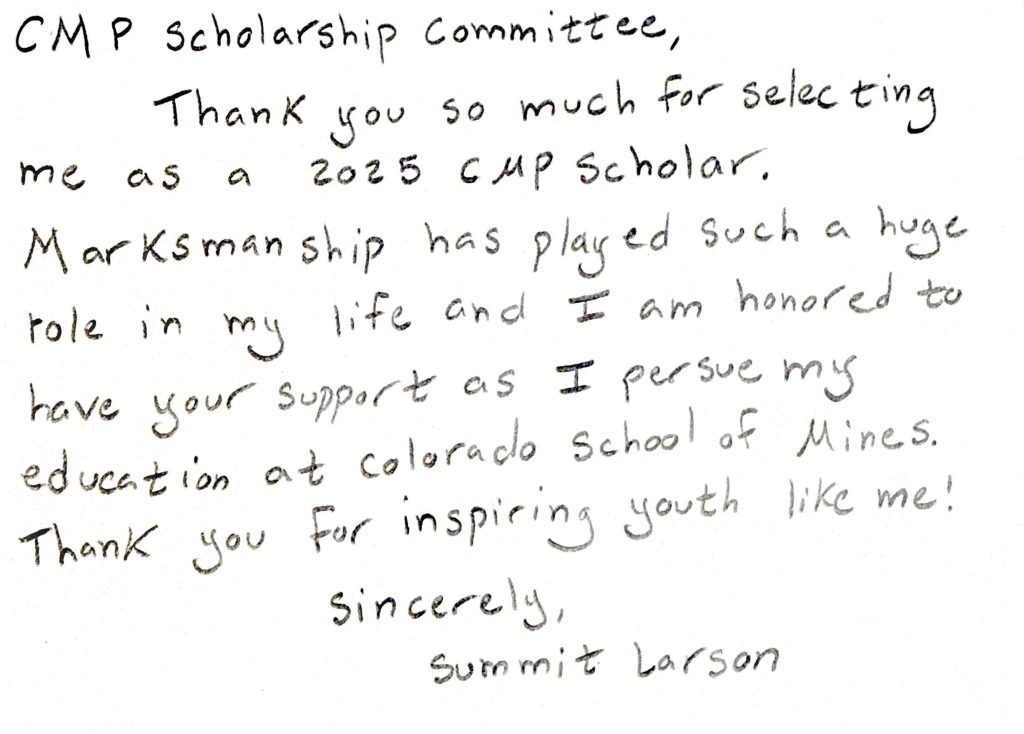 CMP Scholarship Committee,
Thank you so much for selecting
me as a 2025 CMP Scholar.
Marksmanship has played such a huge
role in my life and I am honored to
have your support as I persue my
education at Colorado School of Mines.
Thank you for inspiring youth like me!
Sincerely,
Summit Larson